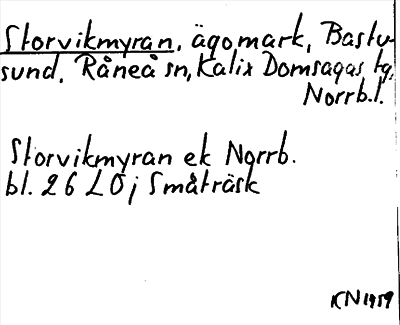 Storvikmyran, ägomark, Bastu-
sund, Råneå sn, Kalix Domsagas tg,
Norrb.l.
Storvikmyran ek Norrb.
bl. 26 LÖj Småträsk
KN 1959